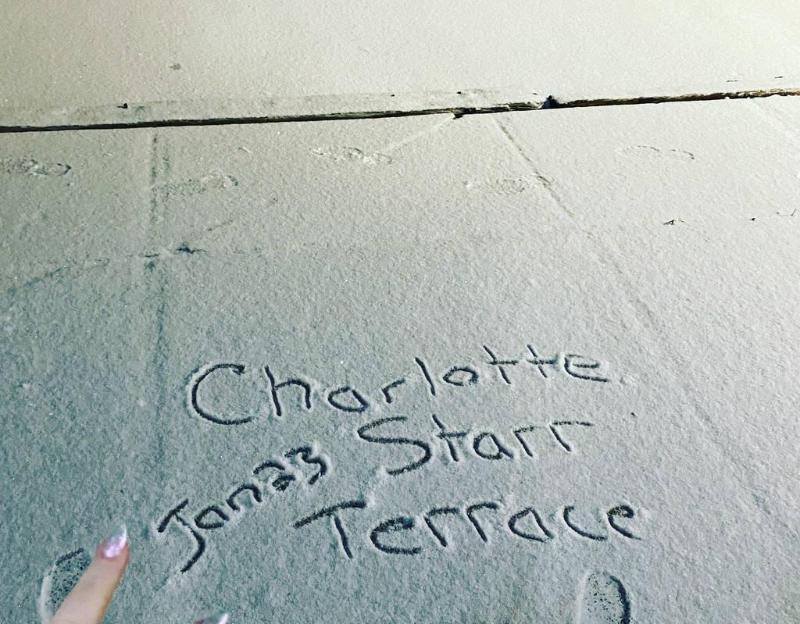 Charlotte
Starr
Jan23
Terrace